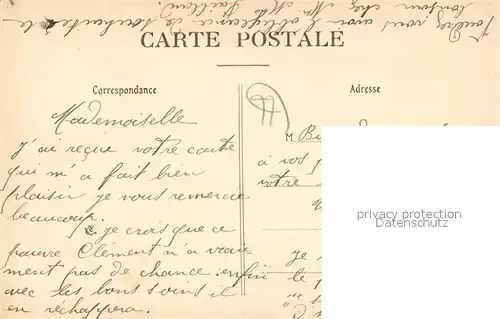 Voudrez vous avoir l'obligeance de souhaiter le
bonjour chez Mr Mlle
CARTE POSTALE
Correspondance
Adresse
Mademoiselle
J'ai reçue votre carte
qui m'a fait bien
plaisir je vous remercie
beaucoup.
je crois que ce
pauvre Clément n'a vrai
ment pas de chance enfin
avec les bons soins il
en réchappera.
M
à vos
votre
je
le
privacy protection
Datenschutz